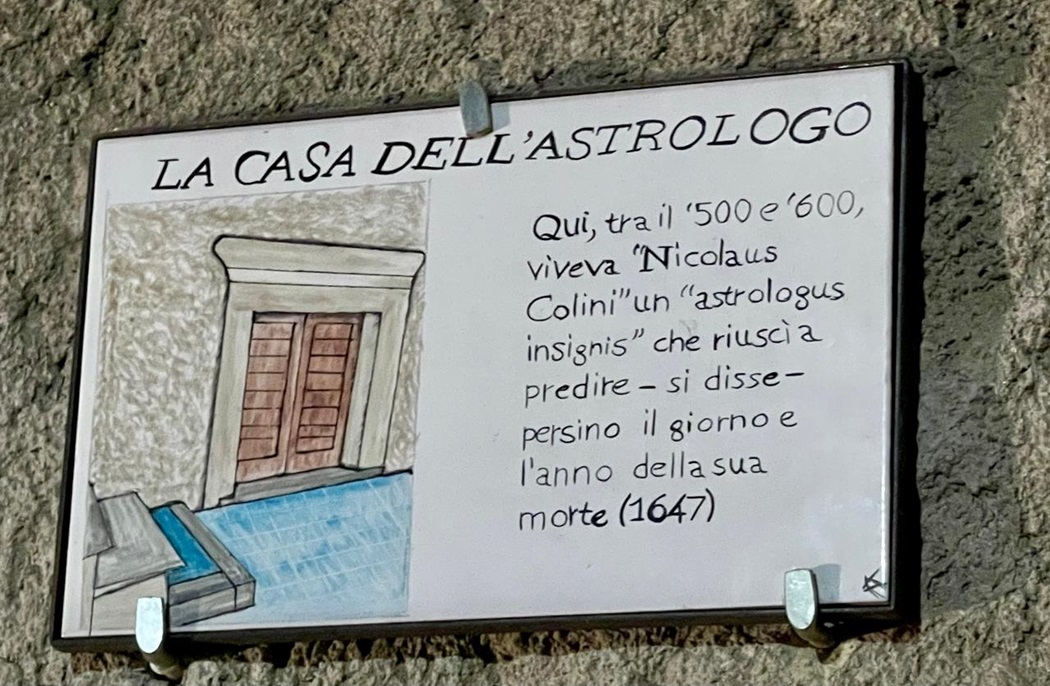 LA CASA DELL'ASTROLOGO
Qui, tra il '500 e '600,
viveva "Nicolaus
Colini" un "astrologus
insignis" che riuscì a
predire – si disse –
persino il giorno e
l'anno della sua
morte (1647)